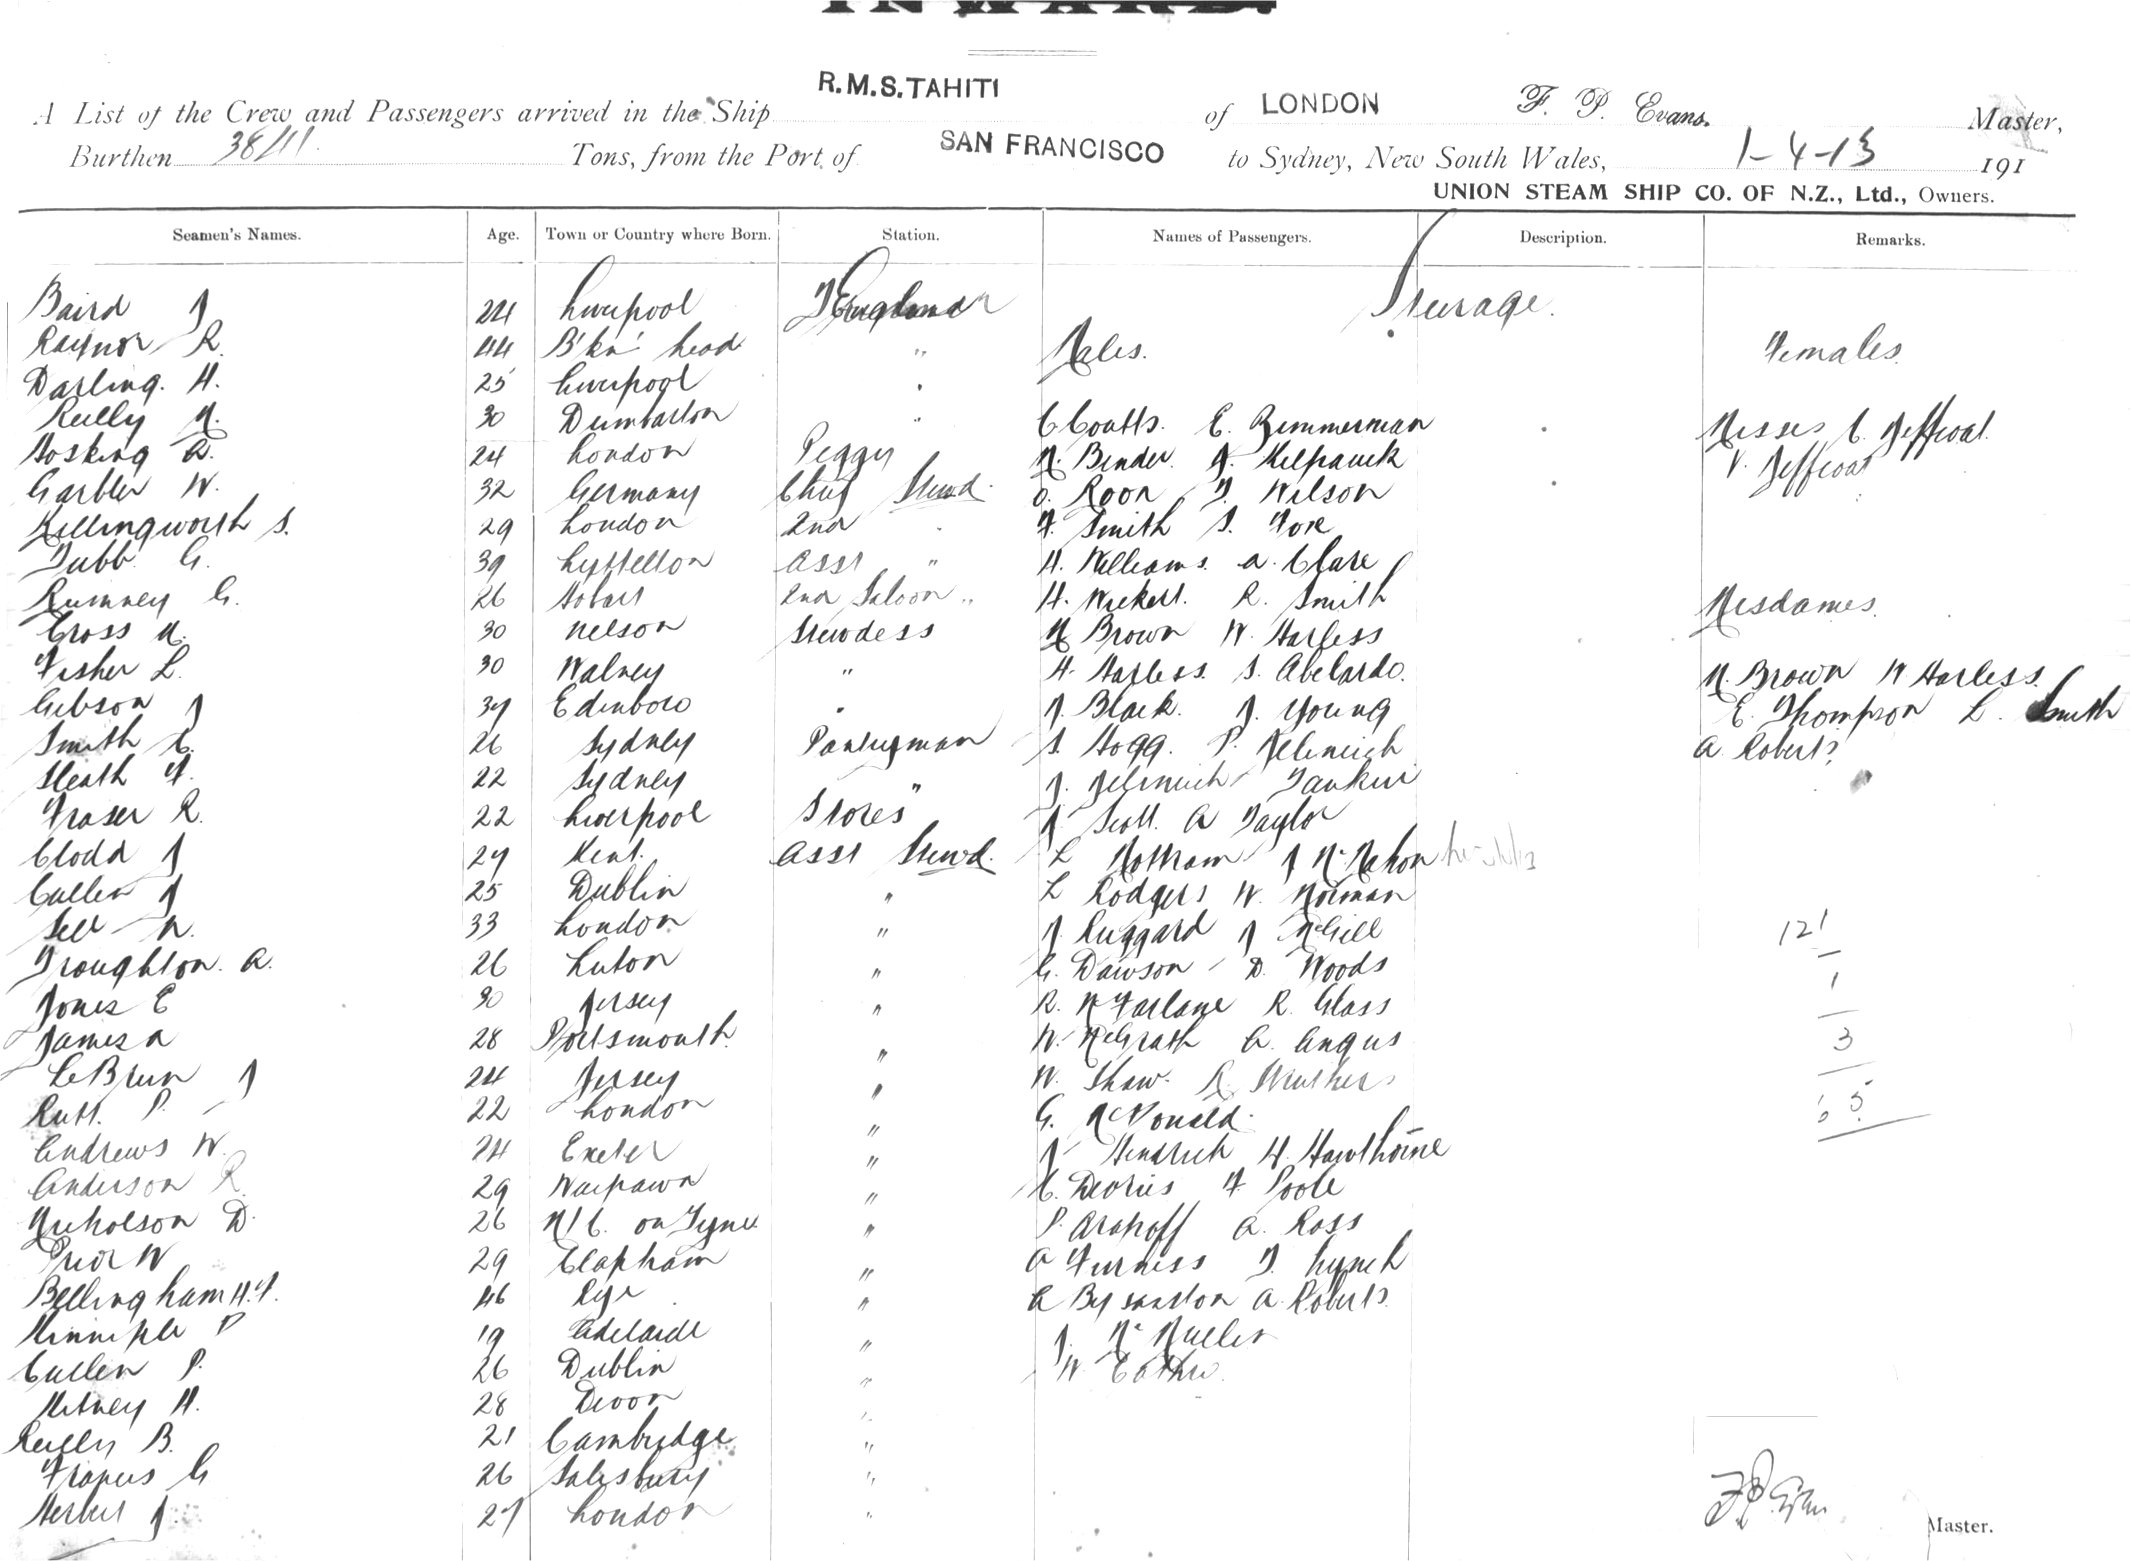 INWARD.
R.M.S. TAHITI
A List of the Crew and Passengers arrived in the Ship of LONDON F. P. Evans. Master,
Burthen 38/11. Tons, from the Port of SAN FRANCISCO to Sydney, New South Wales, 1-4-13 191
UNION STEAM SHIP CO. OF N.Z., Ltd., Owners.
Seamen's Names. Age. Town or Country where Born. Station. Names of Passengers. Description. Remarks.
Baird J 24 Liverpool Steerage.
Raynor R. 44 B'kn' head " Males. Females.
Darling. H. 25 Liverpool "
Reilly M. 30 Dumbarton " C Coutts. E. Zimmerman Misses C. Jeffcoat.
Hosking A. 24 London Peggy M. Binder. J. Kilpatrick V. Jeffcoat
Garbler W. 32 Germany Chief Stewd. O. Roon T. Wilson
Killingworth S. 29 London 2nd " F. Smith S. Fox
Tubb G. 39 Lyttelton Asst " H. Williams. A. Clare
Rumney G. 26 Hobart 2nd Saloon " H. Wickert. R. Smith Mesdames.
Cross M. 30 Nelson Stewdess M Brown W. Harless
Fisher L. 30 Walney " H. Harless. S. Abelardo. M. Brown W Harless.
Gibson J 37 Edinboro " J. Black. J. Young E. Thompson L. Smith
Smith C. 26 Sydney Pantryman S. Hogg. P. Jelinich A Roberts
Sleath F. 22 Sydney " J. Jelinich
Fraser R. 22 Liverpool Stores J. Scott. A Taylor
Clodd J 27 Kent. Asst Stewd. L J McMahon
Cullen J 25 Dublin " L Rodgers W. Norman
Sell 33 London " J. Ruggard J McGill 121
Troughton. A. 26 Luton " G. Dawson D. Woods
Jones E 30 Jersey " R. McFarlane R. Glass 1
James A 28 Portsmouth. " W. McGrath A. Angus 3
Le Brun J 24 Jersey " W. Shaw. R. Struthers
Rutt. P. 22 London " G. McDonald.
Andrews W. 24 Exeter " J Hendrick H. Hawthorne
Anderson R. 29 Waipawa " C. Devries F. Poole
Nicholson D. 26 N/C. on Tyne " P. A. Ross
Prior W 29 Clapham " A Furniss T. Lynch
Bellingham H.F. 46 Rye " A A. Roberts
P 19 Adelaide " J. McMullen
Cullen P. 26 Dublin " W.
H. 28 Devon "
Reilly B. 21 Cambridge "
G 26 Salisbury "
Herbert J. 27 London "
Master.